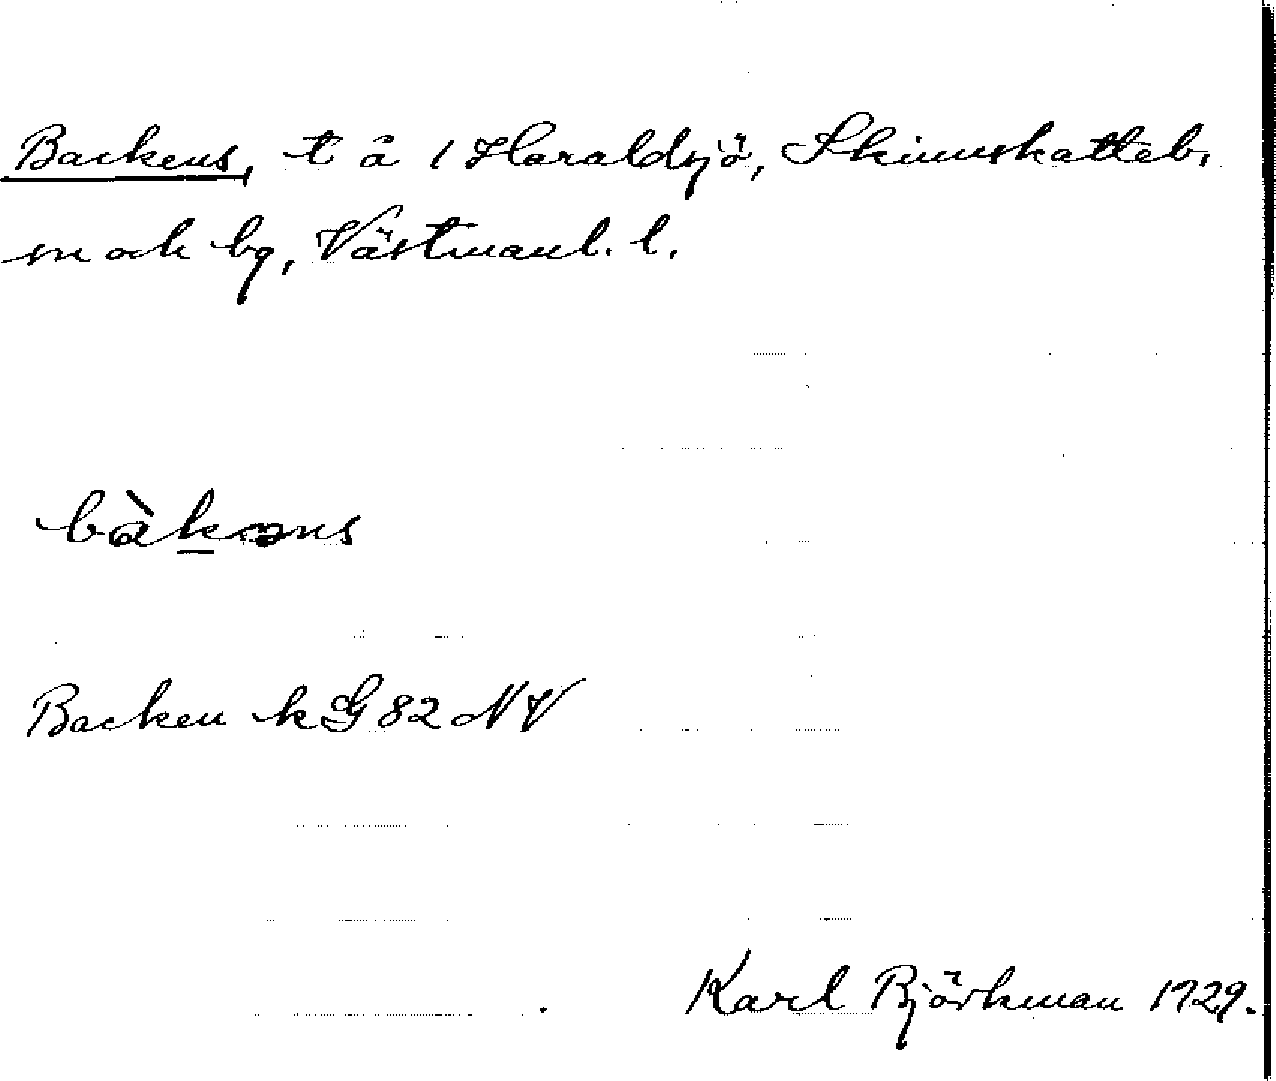 Backens, t å 1 Haraldsjö, Skinnskatteb.
sn och bg, Västmanl. l.
bàkəns
Backen k G 82 NV
Karl Björkman 1929.